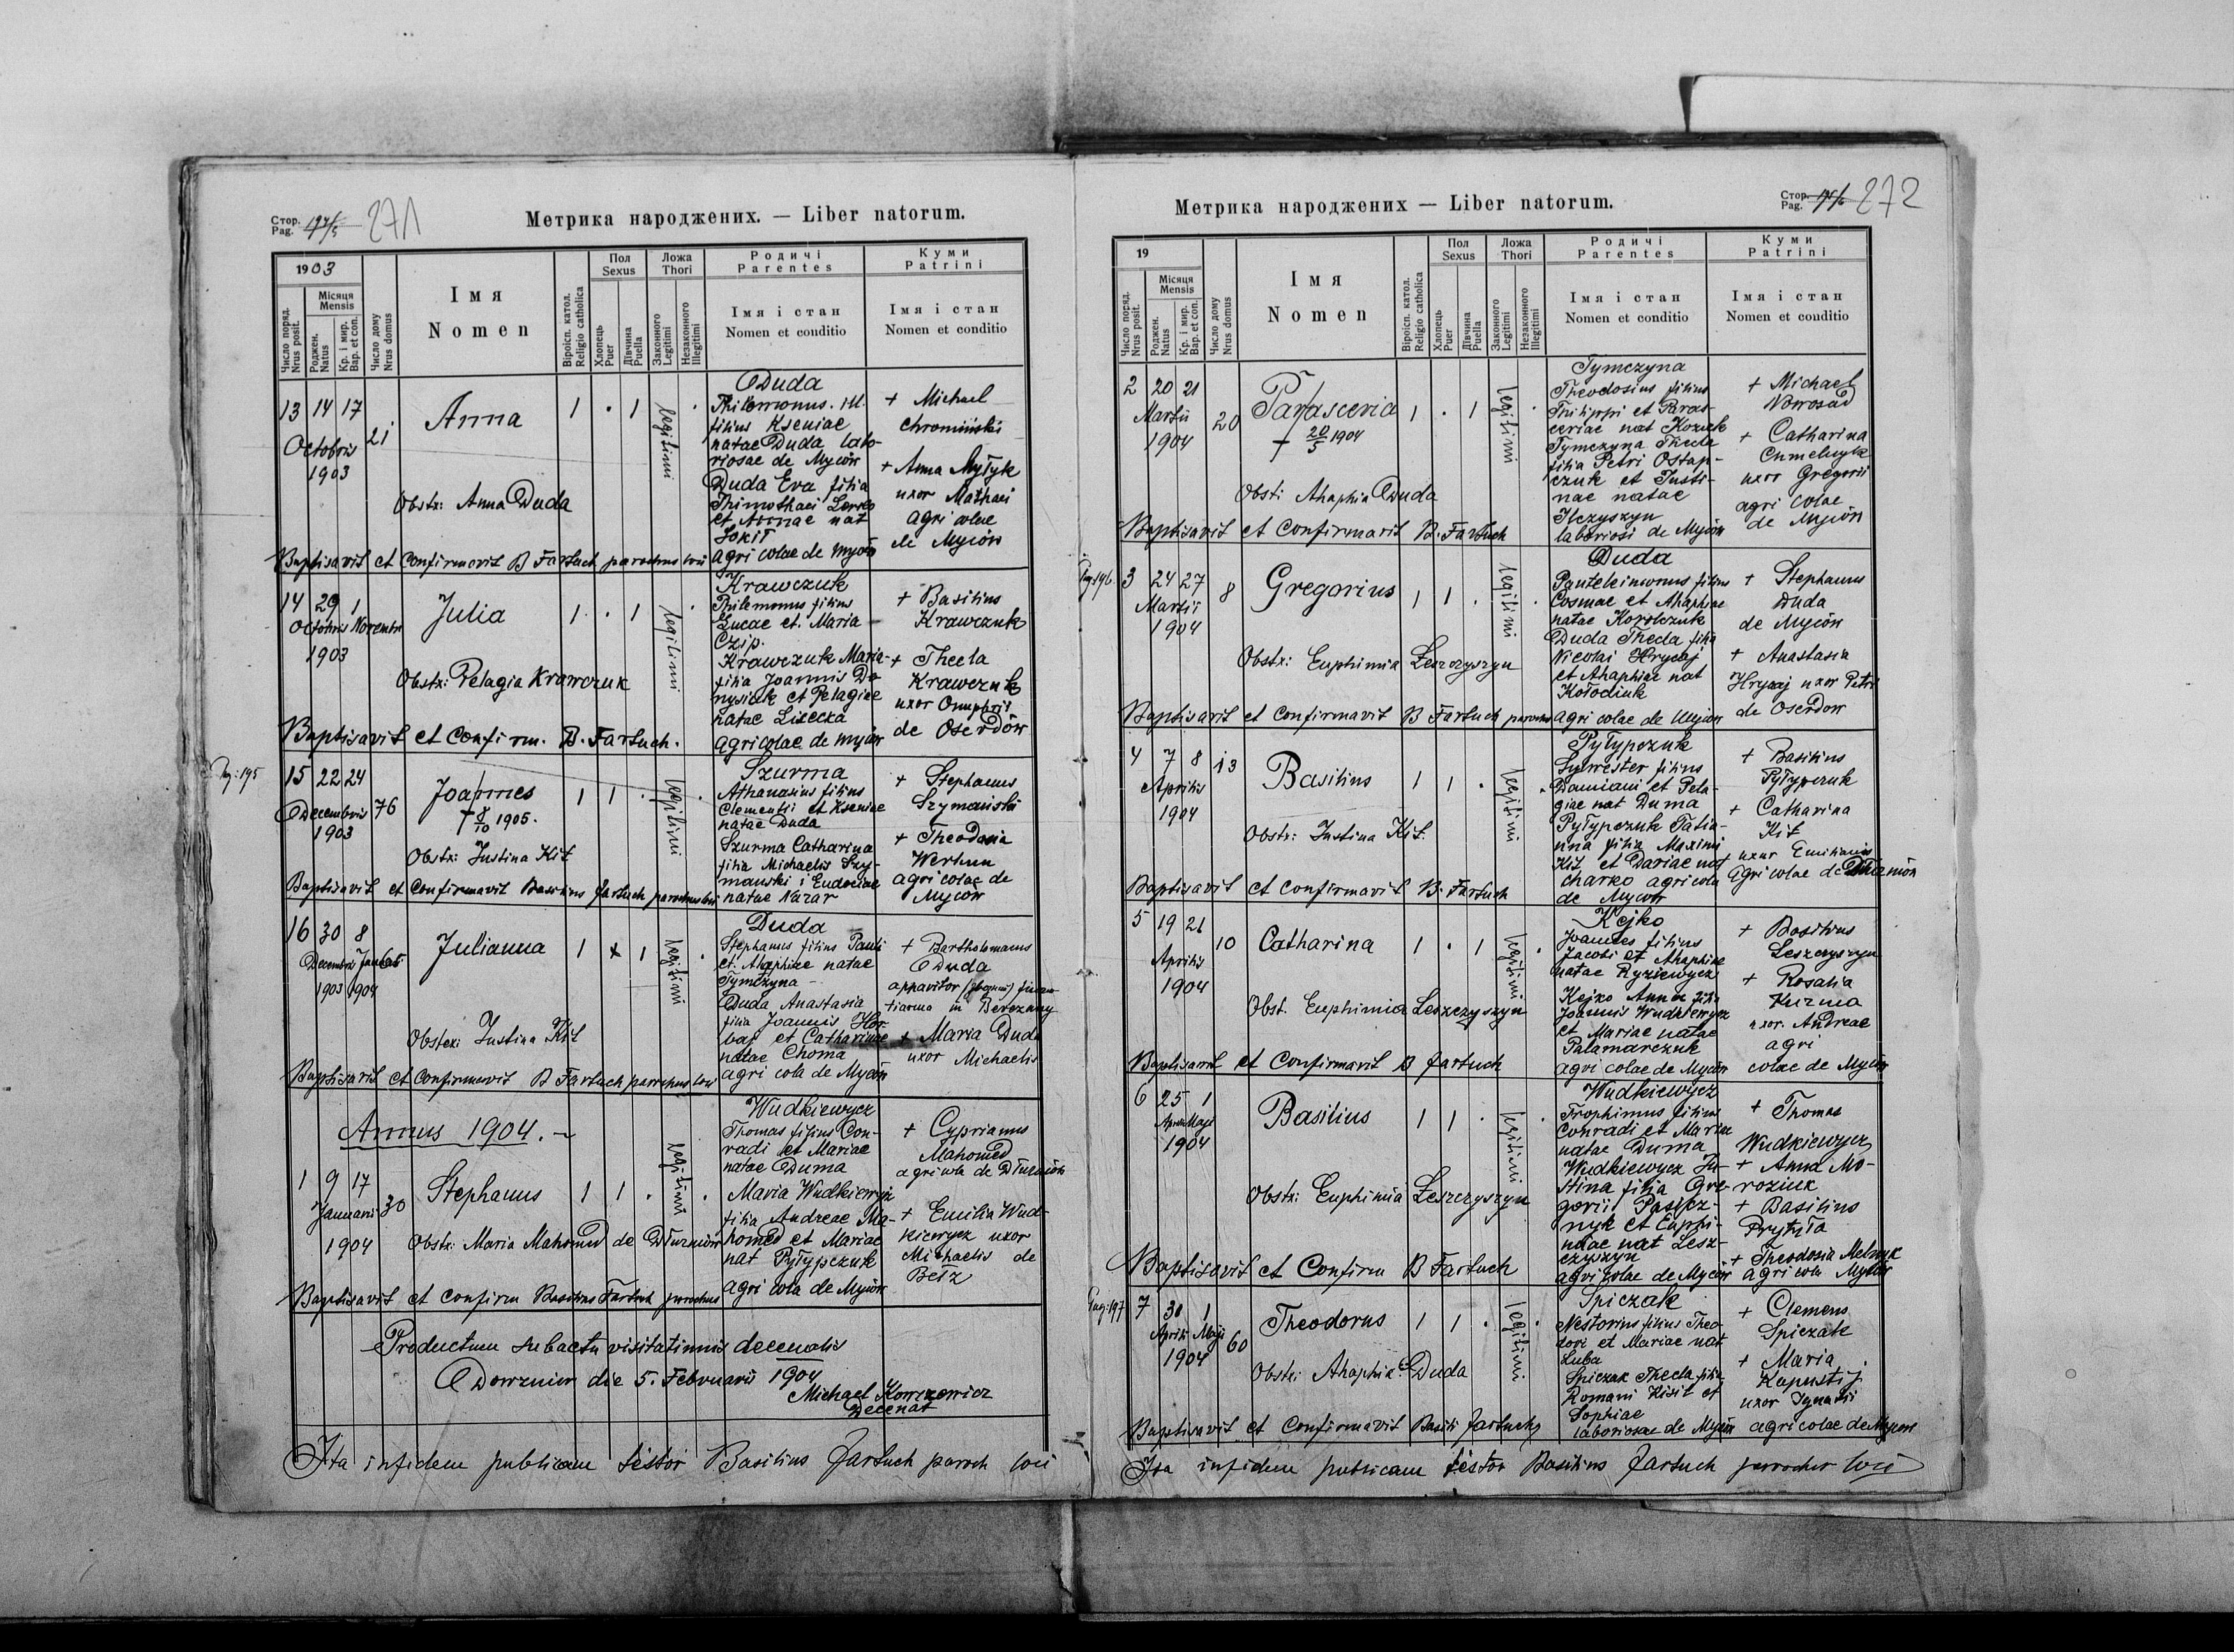 Стор. Pag. 194/5 271
Метрика народжених. — Liber natorum.
1903
Число поряд. Nrus posit.
Місяця Mensis
Роджен. Natus
Кр. і мир. Bap. et con.
Число дому Nrus domus
Імя
Nomen
Віроісп. катол. Religio catholica
Пол Sexus
Хлопець Puer
Дівчина Puella
Ложа Thori
Законного Legitimi
Незаконного Illegitimi
Родичі
Parentes
Імя і стан
Nomen et conditio
Куми
Patrini
Імя і стан
Nomen et conditio
13 14 17
Octobris
1903
21
Anna
1 · 1
legitimi
Obstx: Anna Duda
Duda
Philemonus
filius Kseniae
natae Duda labo-
riosae de Myców
Duda Eva filia
Thimothaei
et Annae nat
agricolae de Myców
+ Michael
Chromiński
+ Anna Mytyk
uxor Mathaei
agricolae
de Myców
Baptisavit et Confirmavit B Fartuch parochus loci
14 29 1
Octobris Novembr
1903
Julia
1 · 1
legitimi
Obstx: Pelagia Krawczuk
Krawczuk
Philemonus filius
Lucae et Maria
Czip.
Krawczuk Maria
filia Joannis De-
nysiuk et Pelagiae
natae Lisecka
agricolae de Myców
+ Basilius
Krawczuk
+ Thecla
Krawczuk
uxor Onuphrii
de Oserdów
Baptisavit et Confirm. B. Fartuch.
Pag: 195
15 22 24
Decembris
1903
76
Joannes
+ 8/10 1905.
1 1 ·
legitimi
Obstx: Justina Kit
Szurma
Athanasius filius
Clementii et Kseniae
natae Duda
Szurma Catharina
filia Michaelis Szy-
manski i Eudociae
natae Nazar
+ Stephanus
Szymański
+ Theodosia
Werhun
agricolae de
Myców
Baptisavit et Confirmavit Basilius Fartuch parochus loci
16 30 8
Decembris Januarii
1903 1904
Julianna
1 × 1
legitimi
Obstex: Justina Kit
Duda
Stephanus filius Pauli
et Ahaphiae natae
Tymczyna
Duda Anastasia
filia Joannis Hor-
baj et Catharinae
natae Choma
agricola de Myców
+ Bartholomaeus
Duda
apparitor finan-
tiarum in Berezany
+ Maria Duda
uxor Michaelis
Baptisavit et Confirmavit B Fartuch parochus loci
Annus 1904. –
1 9 17
Januarii
1904
30
Stephanus
1 1 ·
legitimi
Obstx: Maria Mahomed de Dłużniów
Wudkiewycz
Thomas filius Con-
radi et Mariae
natae Duma
Maria Wudkiewycz
filia Andreae Ma-
homed et Mariae
nat Pyłypczuk
agricola de Myców
+ Cyprianus
Mahomed
agricola de Dłużniów
+ Emilia Wud-
kiewycz uxor
Michaelis de
Bełz
Baptisavit et Confirm Basilius Fartuch parochus
Productum sub actu visitationis decenalis
Dowzniw die 5. Februarii 1904
Michael Kowczewicz
Decenat
Ita in fidem publicam testor Basilius Fartuch paroch loci
Стор. Pag. 272
Метрика народжених — Liber natorum.
19
Число поряд. Nrus posit.
Місяця Mensis
Роджен. Natus
Кр. і мир. Bap. et con.
Число дому Nrus domus
Імя
Nomen
Віроісп. катол. Religio catholica
Пол Sexus
Хлопець Puer
Дівчина Puella
Ложа Thori
Законного Legitimi
Незаконного Illegitimi
Родичі
Parentes
Імя і стан
Nomen et conditio
Куми
Patrini
Імя і стан
Nomen et conditio
2 20 21
Martii
1904
20
Parascevia
+ 20/5 1904
1 · 1
legitimi
Obst: Ahaphia Duda
Tymczyna
Theodosius filius
Philippi et Paras-
ceviae nat Koziuk
Tymczyna Thecla
filia Petri Ostap-
czuk et Justi-
nae natae
Ilczyszyn
laboriosi de Myców
+ Michael
Noworosad
+ Catharina
Chmelnyk
uxor Gregorii
agricolae
de Myców
Baptisavit et Confirmavit B. Fartuch
Pag: 196
3 24 27
Martii
1904
8
Gregorius
1 1 ·
legitimi
Obstx: Euphimia Leszczyszyn
Duda
Panteleimonus filius
Cosmae et Ahaphiae
natae Korolczuk
Duda Thecla filia
Nicolai Hrycaj
et Ahaphiae nat
Kołodiuk
agricolae de Myców
+ Stephanus
Duda
de Myców
+ Anastasia
Hrycaj uxor Petri
de Oserdow
Baptisavit et Confirmavit B Fartuch parochus
4 7 8
Aprilis
1904
13
Basilius
1 1 ·
legitimi
Obstx: Justina Kit.
Pyłypczuk
Sylwester filius
Damiani et Pela-
giae nat Duma
Pyłypczuk Tatia-
nna filia Maximi
Kit et Dariae nat
Charko agricola
de Myców
+ Basilius
Pyłypczuk
+ Catharina
Kit
uxor Emiliani
agricolae de
Baptisavit et Confirmavit B. Fartuch
5 19 21
Aprilis
1904
10
Catharina
1 · 1
legitimi
Obst. Euphimia Leszczyszyn
Kejko
Joannes filius
Jacobi et Ahaphiae
natae Ryziewycz
Kejko Anna filia
Joannis Wudkiewycz
et Mariae natae
Palamarczuk
agricolae de Myców
+ Basilius
Leszczyszyn
+ Rosalia
Kuzma
uxor Andreae
agri
colae de Myców
Baptisavit et Confirmavit B Fartuch
6 25 1
Aprilis Maji
1904
Basilius
1 1 ·
legitimi
Obstx: Euphimia Leszczyszyn
Wudkiewycz
Trophimus filius
Conradi et Mariae
natae Duma
Wudkiewycz Ju-
stina filia Gre-
gorii Pasicz-
nyk et Euphi-
miae nat Lesz-
czyszyn
agricolae de Myców
+ Thomas
Wudkiewycz
+ Anna Mo-
roziuk
+ Basilius
Prytuła
+ Theodosia Melnyk
agricola Myców
Baptisavit et Confirm B Fartuch
Pag: 197
7 30 1
Aprilis Maji
1904
60
Theodorus
1 1 ·
legitimi
Obstx: Ahaphia Duda
Spiczak
Nestorius filius Theo-
dori et Mariae nat
Luba
Spiczak Thecla filia
Romani Kisil et
Sophiae
laboriosae de Myców
+ Clemens
Spiczak
+ Maria
Kapustij
uxor Ignatii
agricolae de Myców
Baptisavit et Confirmavit Basili Fartuch
Ita in fidem publicam testor Basilius Fartuch parochus loci